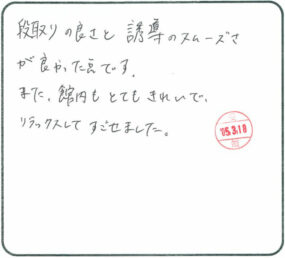 段取りの良さと誘導のスムーズさ
が良かった点です。
また、館内もとてもきれいで、
リラックスしてすごせました。
'15.3.18